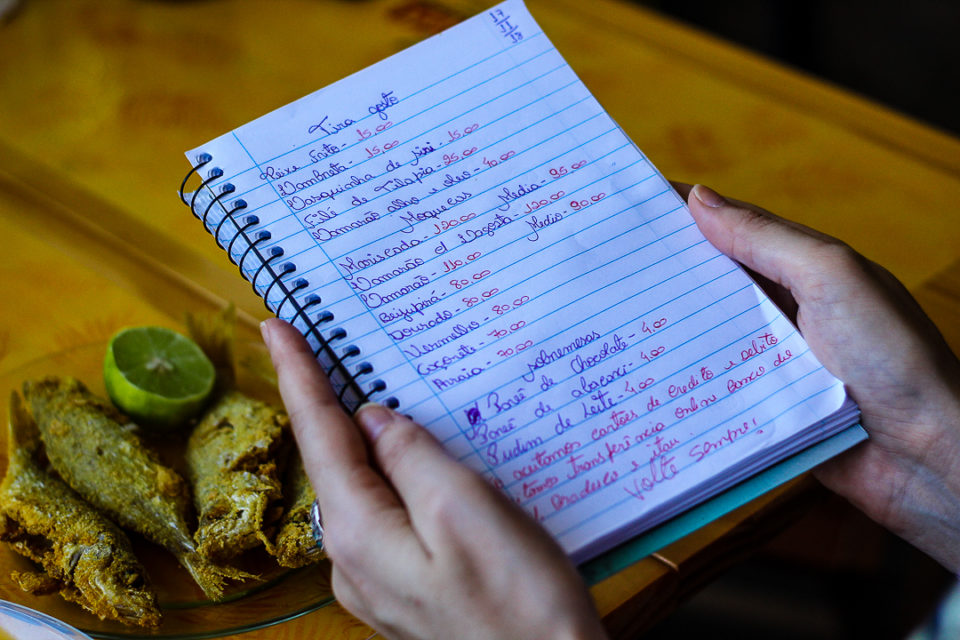 17
11
18
Tira gosto
Peixe frito - 15,00
Lambreta - 15,00
Casquinha de siri - 15,00
Filé de Tilapia - 25,00
Camarão alho e oleo - 40,00
Moquecas
Mariscada - 120,00 Média - 95,00
Camarão e Lagosta - 120,00
Camarão - 110,00 Media - 90,00
Beijupirá - 80,00
Dourado - 80,00
Vermelho - 80,00
Guçarete - 70,00
Arraia - 70,00
sobremesas
Pavê de chocolate - 4,00
Pavê de abacaxi - 4,00
Pudim de Leite - 4,00
aceitamos cartões de credito e debito
transferência online banco do
bradesco e itau.
Volte sempre!